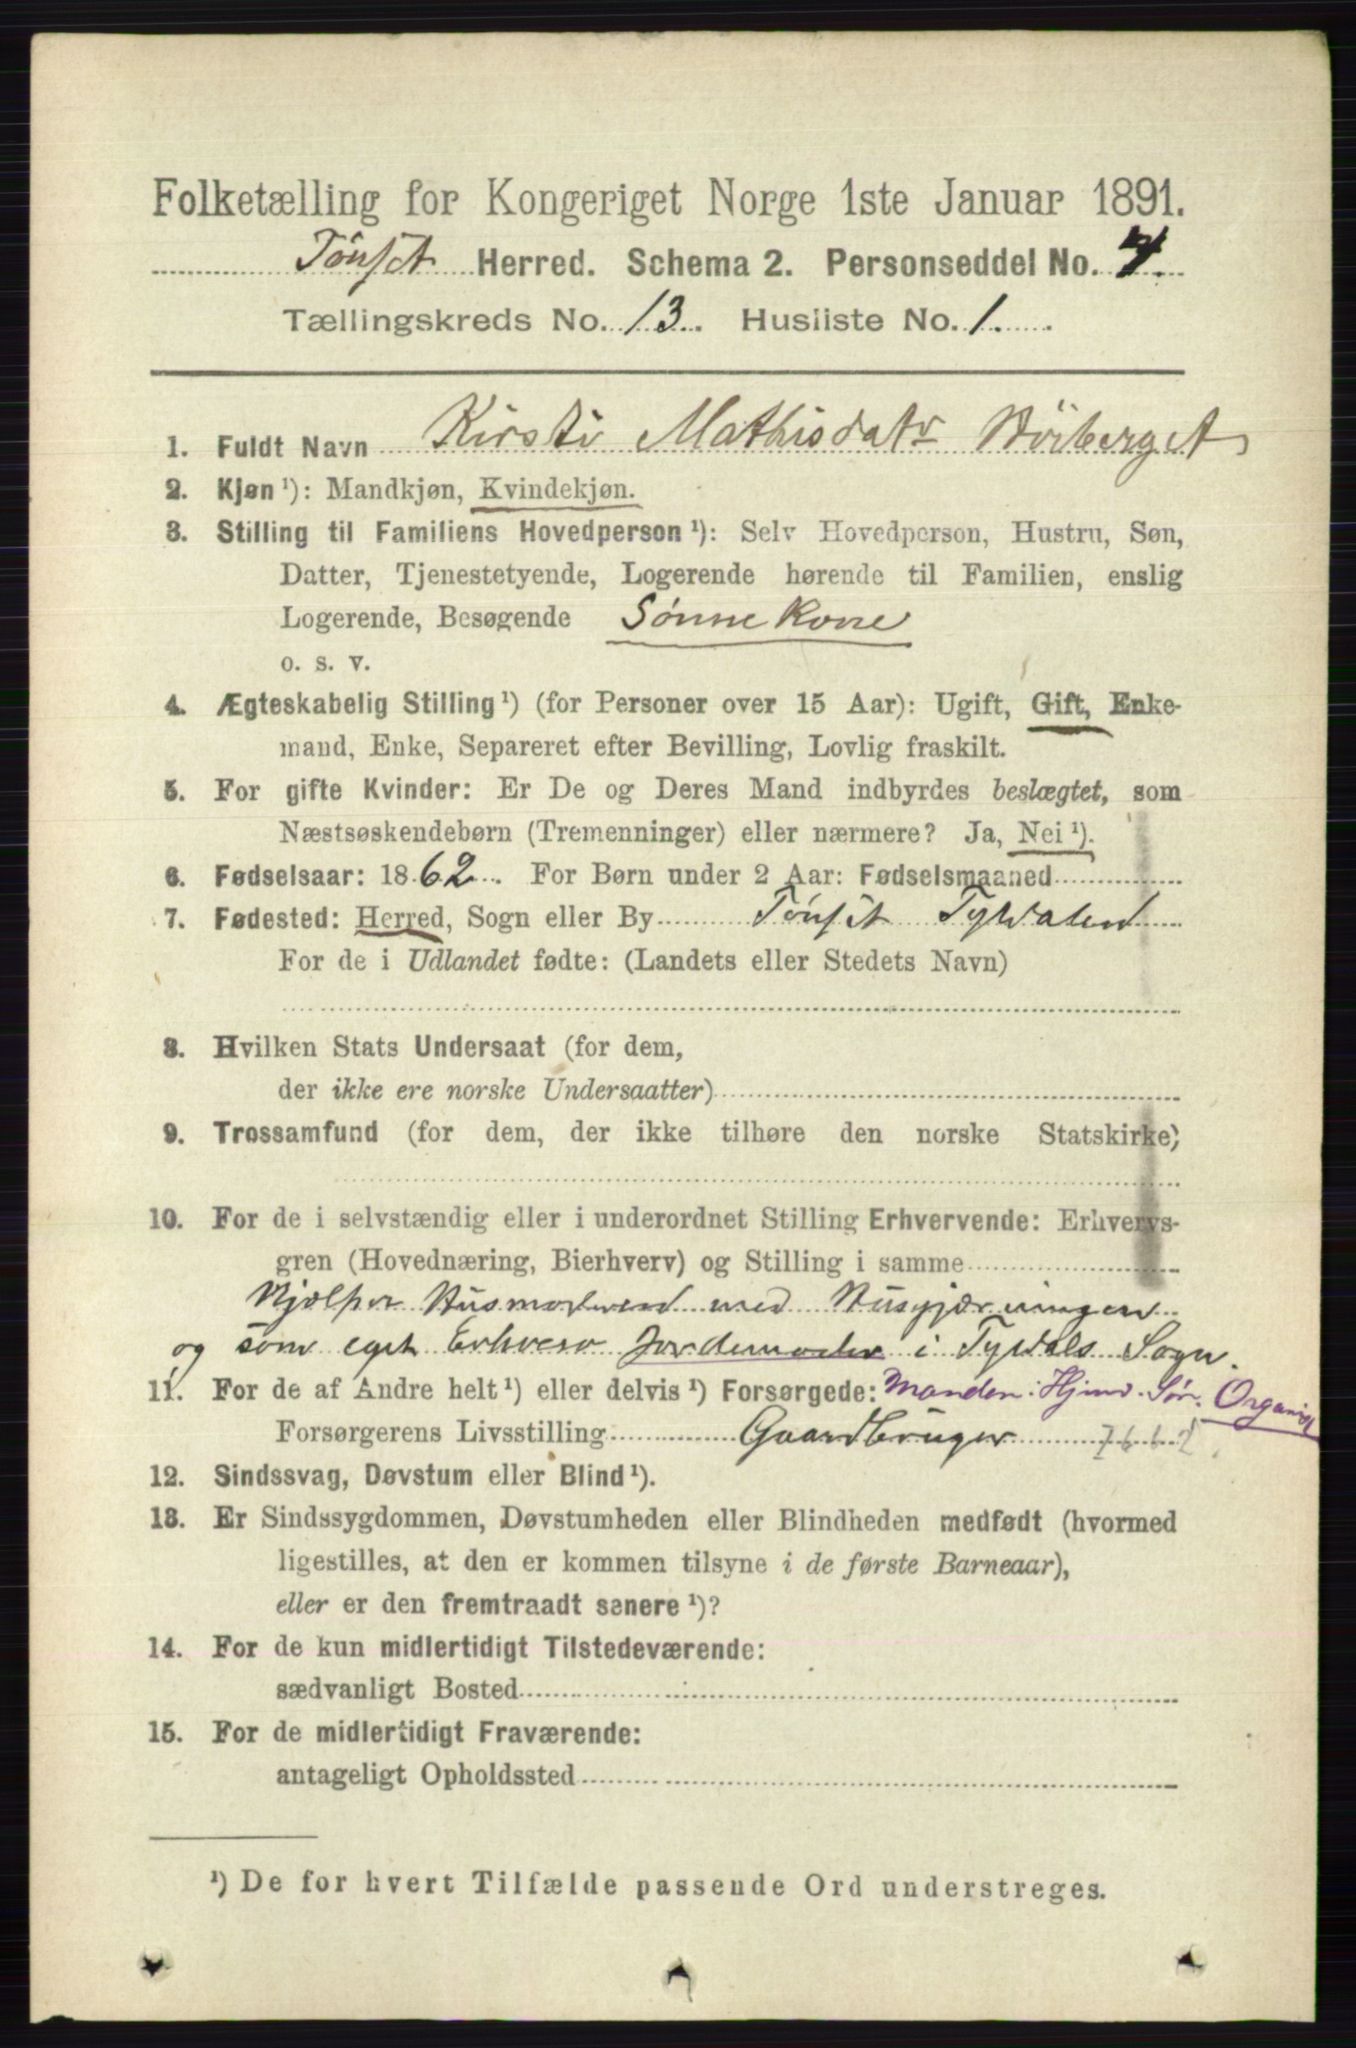 Folketælling for Kongeriget Norge 1ste Januar 1891.
Tønset Herred. Schema 2. Personseddel No. 4.
Tællingskreds No. 13. Husliste No. 1.
1. Fuldt Navn Kirsti Mathisdatr Nørberget
2. Kjøn ¹): Mandkjøn, Kvindekjøn.
3. Stilling til Familiens Hovedperson ¹): Selv Hovedperson, Hustru, Søn,
Datter, Tjenestetyende, Logerende hørende til Familien, enslig
Logerende, Besøgende Sønnekone
o. s. v.
4. Ægteskabelig Stilling ¹) (for Personer over 15 Aar): Ugift, Gift, Enke-
mand, Enke, Separeret efter Bevilling, Lovlig fraskilt.
5. For gifte Kvinder: Er De og Deres Mand indbyrdes beslægtet, som
Næstsøskendebørn (Tremenninger) eller nærmere? Ja, Nei ¹).
6. Fødselsaar: 1862. For Børn under 2 Aar: Fødselsmaaned
7. Fødested: Herred, Sogn eller By Tønset Tyldalen
For de i Udlandet fødte: (Landets eller Stedets Navn)
8. Hvilken Stats Undersaat (for dem,
der ikke ere norske Undersaatter)
9. Trossamfund (for dem, der ikke tilhøre den norske Statskirke)
10. For de i selvstændig eller i underordnet Stilling Erhvervende: Erhvervs-
gren (Hovednæring, Bierhverv) og Stilling i samme
Hjælper Husmoderen med Husgjærningen
og som eget Erhverv Jordemoder i Tyldals Sogn.
11. For de af Andre helt ¹) eller delvis ¹) Forsørgede: Manden:
Forsørgerens Livsstilling Gaardbruger
12. Sindssvag, Døvstum eller Blind ¹).
13. Er Sindssygdommen, Døvstumheden eller Blindheden medfødt (hvormed
ligestilles, at den er kommen tilsyne i de første Barneaar),
eller er den fremtraadt senere ¹)?
14. For de kun midlertidigt Tilstedeværende:
sædvanligt Bosted
15. For de midlertidigt Fraværende:
antageligt Opholdssted
¹) De for hvert Tilfælde passende Ord understreges.